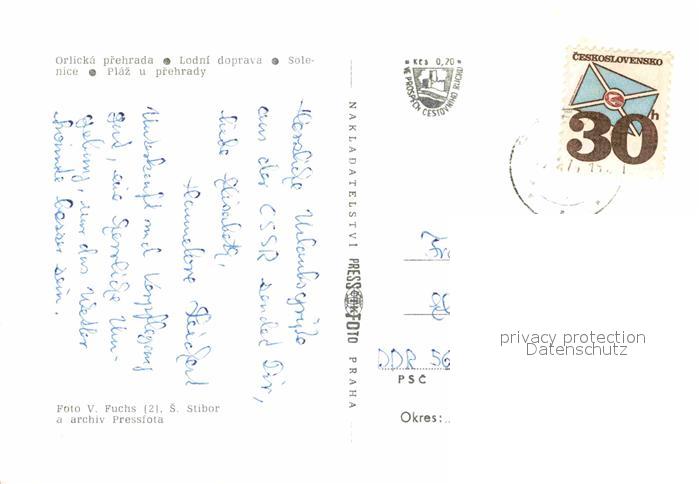 Orlická přehrada ● Lodní doprava ● Sole-
nice ● Pláž u přehrady
Herzliche Urlaubsgrüße
aus der ČSSR sendet Dir,
liebe Elisabeth,
Hannelore
Unterkunft und Verpflegung
gut, eine herrliche Um-
gebung, nur das Wetter
könnte besser sein.
Foto V. Fuchs (2), Š. Stibor
a archiv Pressfota
NAKLADATELSTVÍ PRESSFOTO PRAHA
* Kčs 0,20 *
VE PROSPĚCH CESTOVNÍHO RUCHU
ČESKOSLOVENSKO
30h
DDR 56
PSČ
Okres:..
privacy protection
Datenschutz